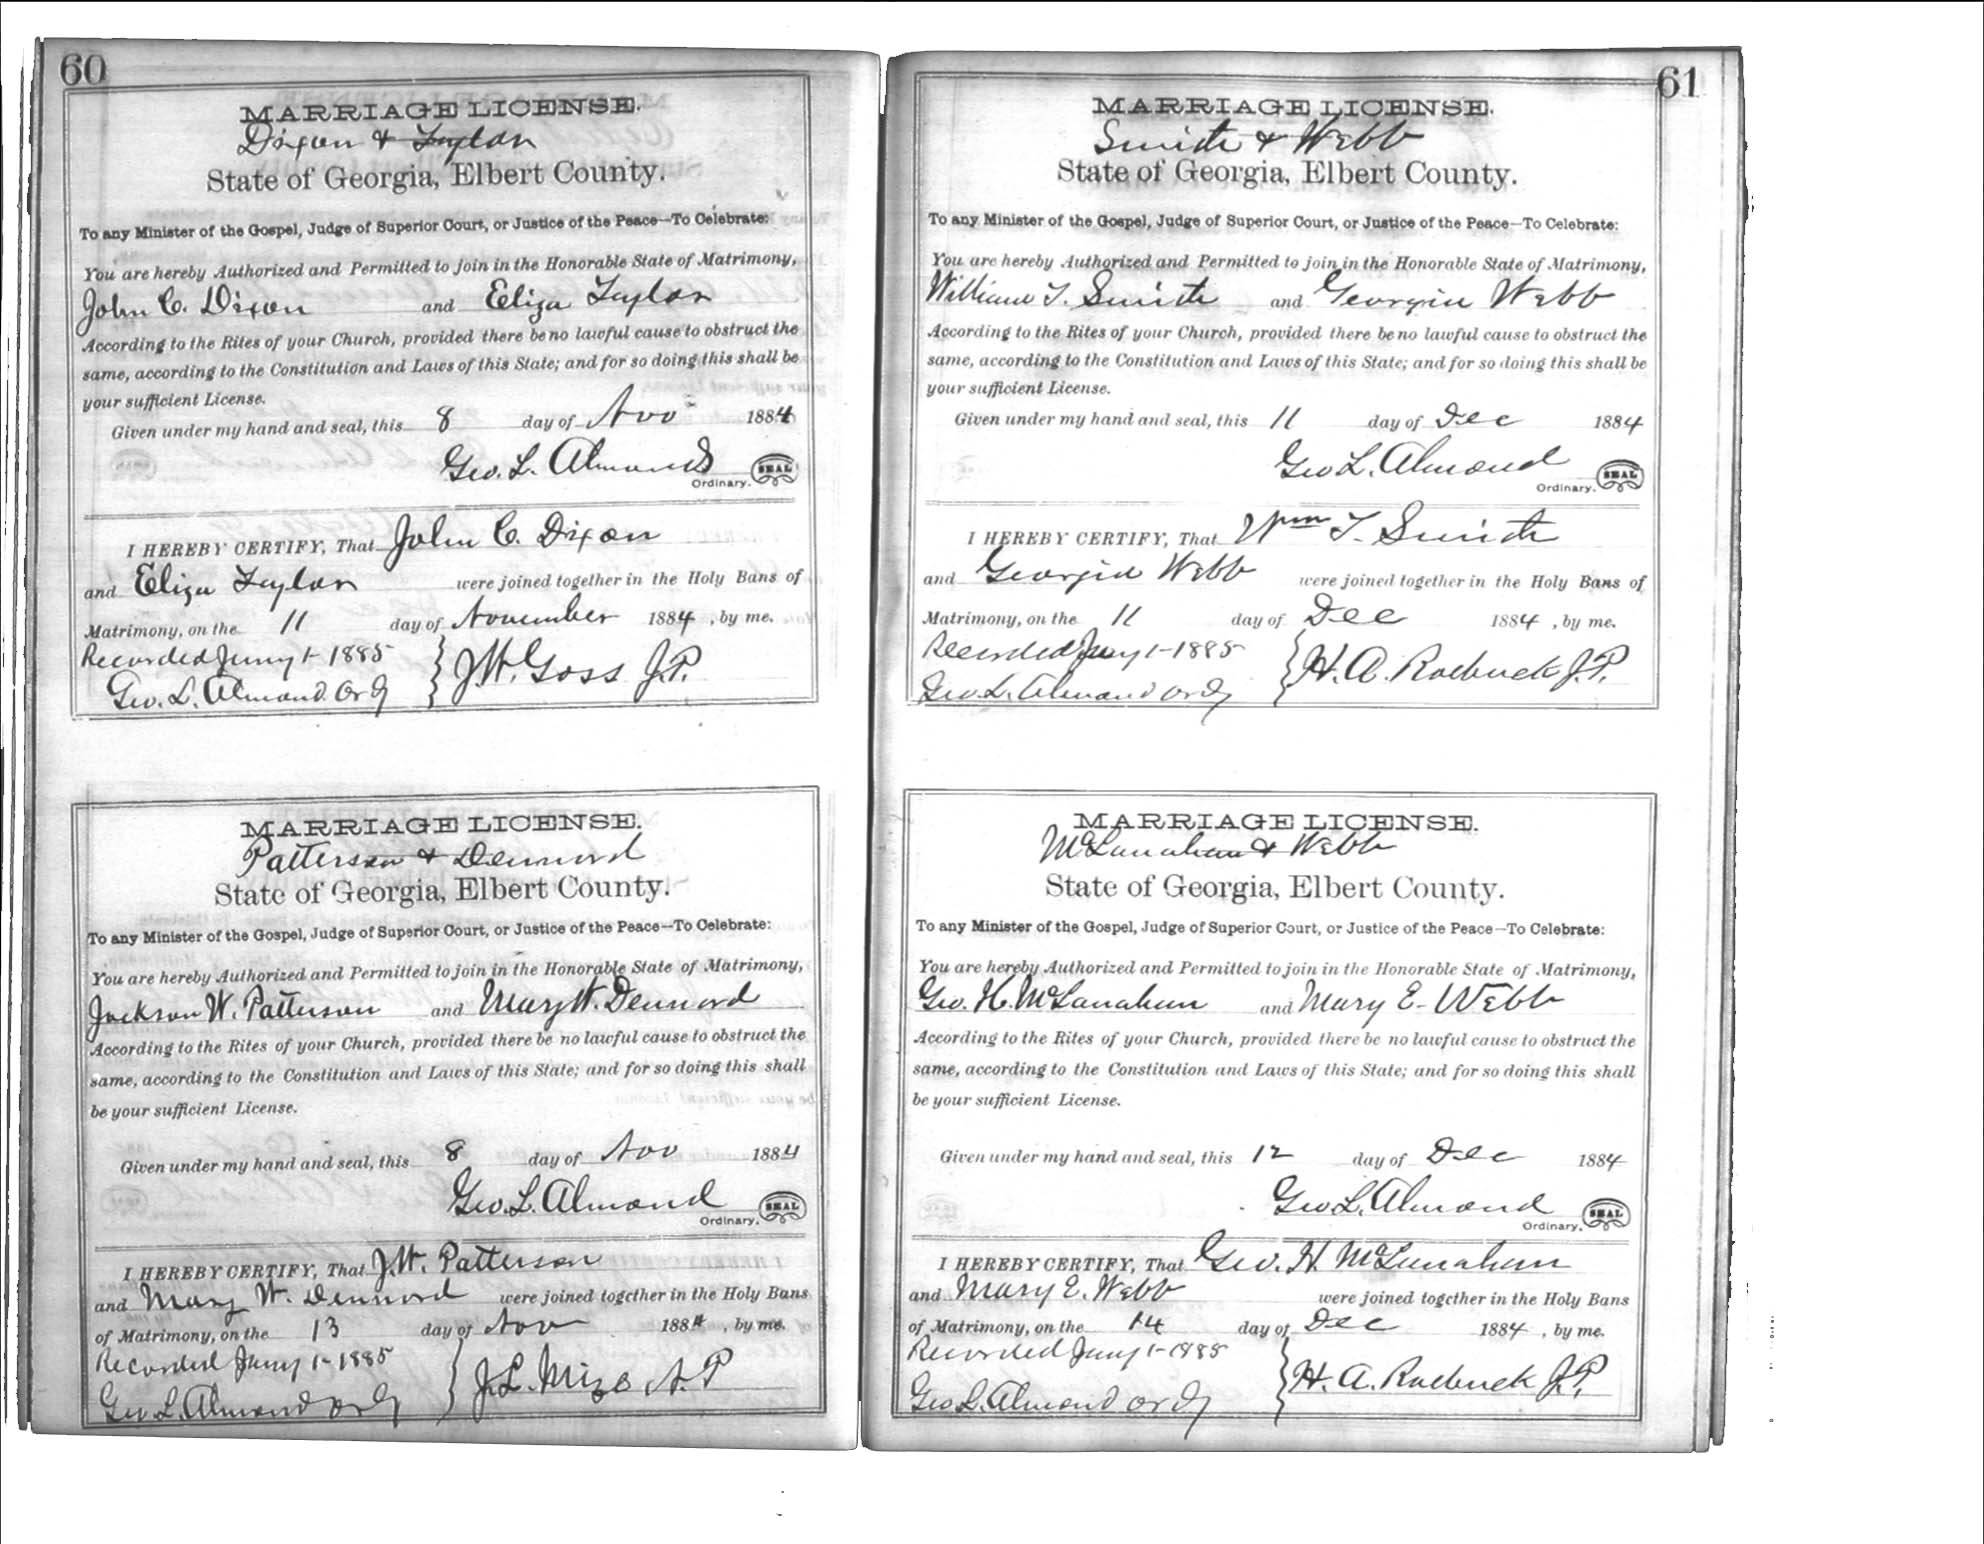 60
MARRIAGE LICENSE.
Dixon & Taylor
State of Georgia, Elbert County.
To any Minister of the Gospel, Judge of Superior Court, or Justice of the Peace—To Celebrate:
You are hereby Authorized and Permitted to join in the Honorable State of Matrimony,
John C. Dixon and Eliza Taylor
According to the Rites of your Church, provided there be no lawful cause to obstruct the
same, according to the Constitution and Laws of this State; and for so doing this shall be
your sufficient License.
Given under my hand and seal, this 8 day of Nov 1884
Geo. L. Almond SEAL
Ordinary.
I HEREBY CERTIFY, That John C. Dixon
and Eliza Taylor were joined together in the Holy Bans of
Matrimony, on the 11 day of November 1884, by me.
Recorded Jany 1-1885 J.W. Goss J.P.
Geo. L. Almond Ordy
MARRIAGE LICENSE.
Patterson & Dennord
State of Georgia, Elbert County.
To any Minister of the Gospel, Judge of Superior Court, or Justice of the Peace—To Celebrate:
You are hereby Authorized and Permitted to join in the Honorable State of Matrimony,
Jackson W. Patterson and Mary W. Dennord
According to the Rites of your Church, provided there be no lawful cause to obstruct the
same, according to the Constitution and Laws of this State; and for so doing this shall
be your sufficient License.
Given under my hand and seal, this 8 day of Nov 1884
Geo. L. Almond SEAL
Ordinary.
I HEREBY CERTIFY, That J.W. Patterson
and Mary W. Dennord were joined together in the Holy Bans
of Matrimony, on the 13 day of Nov 1884, by me.
Recorded Jany 1-1885 J.L. Mize N.P
Geo L. Almond Ordy
61
MARRIAGE LICENSE.
Smith & Webb
State of Georgia, Elbert County.
To any Minister of the Gospel, Judge of Superior Court, or Justice of the Peace—To Celebrate:
You are hereby Authorized and Permitted to join in the Honorable State of Matrimony,
William T. Smith and Georgia Webb
According to the Rites of your Church, provided there be no lawful cause to obstruct the
same, according to the Constitution and Laws of this State; and for so doing this shall be
your sufficient License.
Given under my hand and seal, this 11 day of Dec 1884
Geo L. Almond SEAL
Ordinary.
I HEREBY CERTIFY, That Wm T. Smith
and Georgia Webb were joined together in the Holy Bans of
Matrimony, on the 11 day of Dec 1884, by me.
Recorded Jany 1-1885 H. A. Roebuck J.P.
Geo L. Almond Ordy
MARRIAGE LICENSE.
McLanahan & Webb
State of Georgia, Elbert County.
To any Minister of the Gospel, Judge of Superior Court, or Justice of the Peace—To Celebrate:
You are hereby Authorized and Permitted to join in the Honorable State of Matrimony,
Geo. H. McLanahan and Mary E. Webb
According to the Rites of your Church, provided there be no lawful cause to obstruct the
same, according to the Constitution and Laws of this State; and for so doing this shall
be your sufficient License.
Given under my hand and seal, this 12 day of Dec 1884
Geo L. Almond SEAL
Ordinary.
I HEREBY CERTIFY, That Geo. H McLanahan
and Mary E. Webb were joined together in the Holy Bans
of Matrimony, on the 14 day of Dec 1884, by me.
Recorded Jany 1-1885 H. A. Roebuck J.P.
Geo L. Almond Ordy